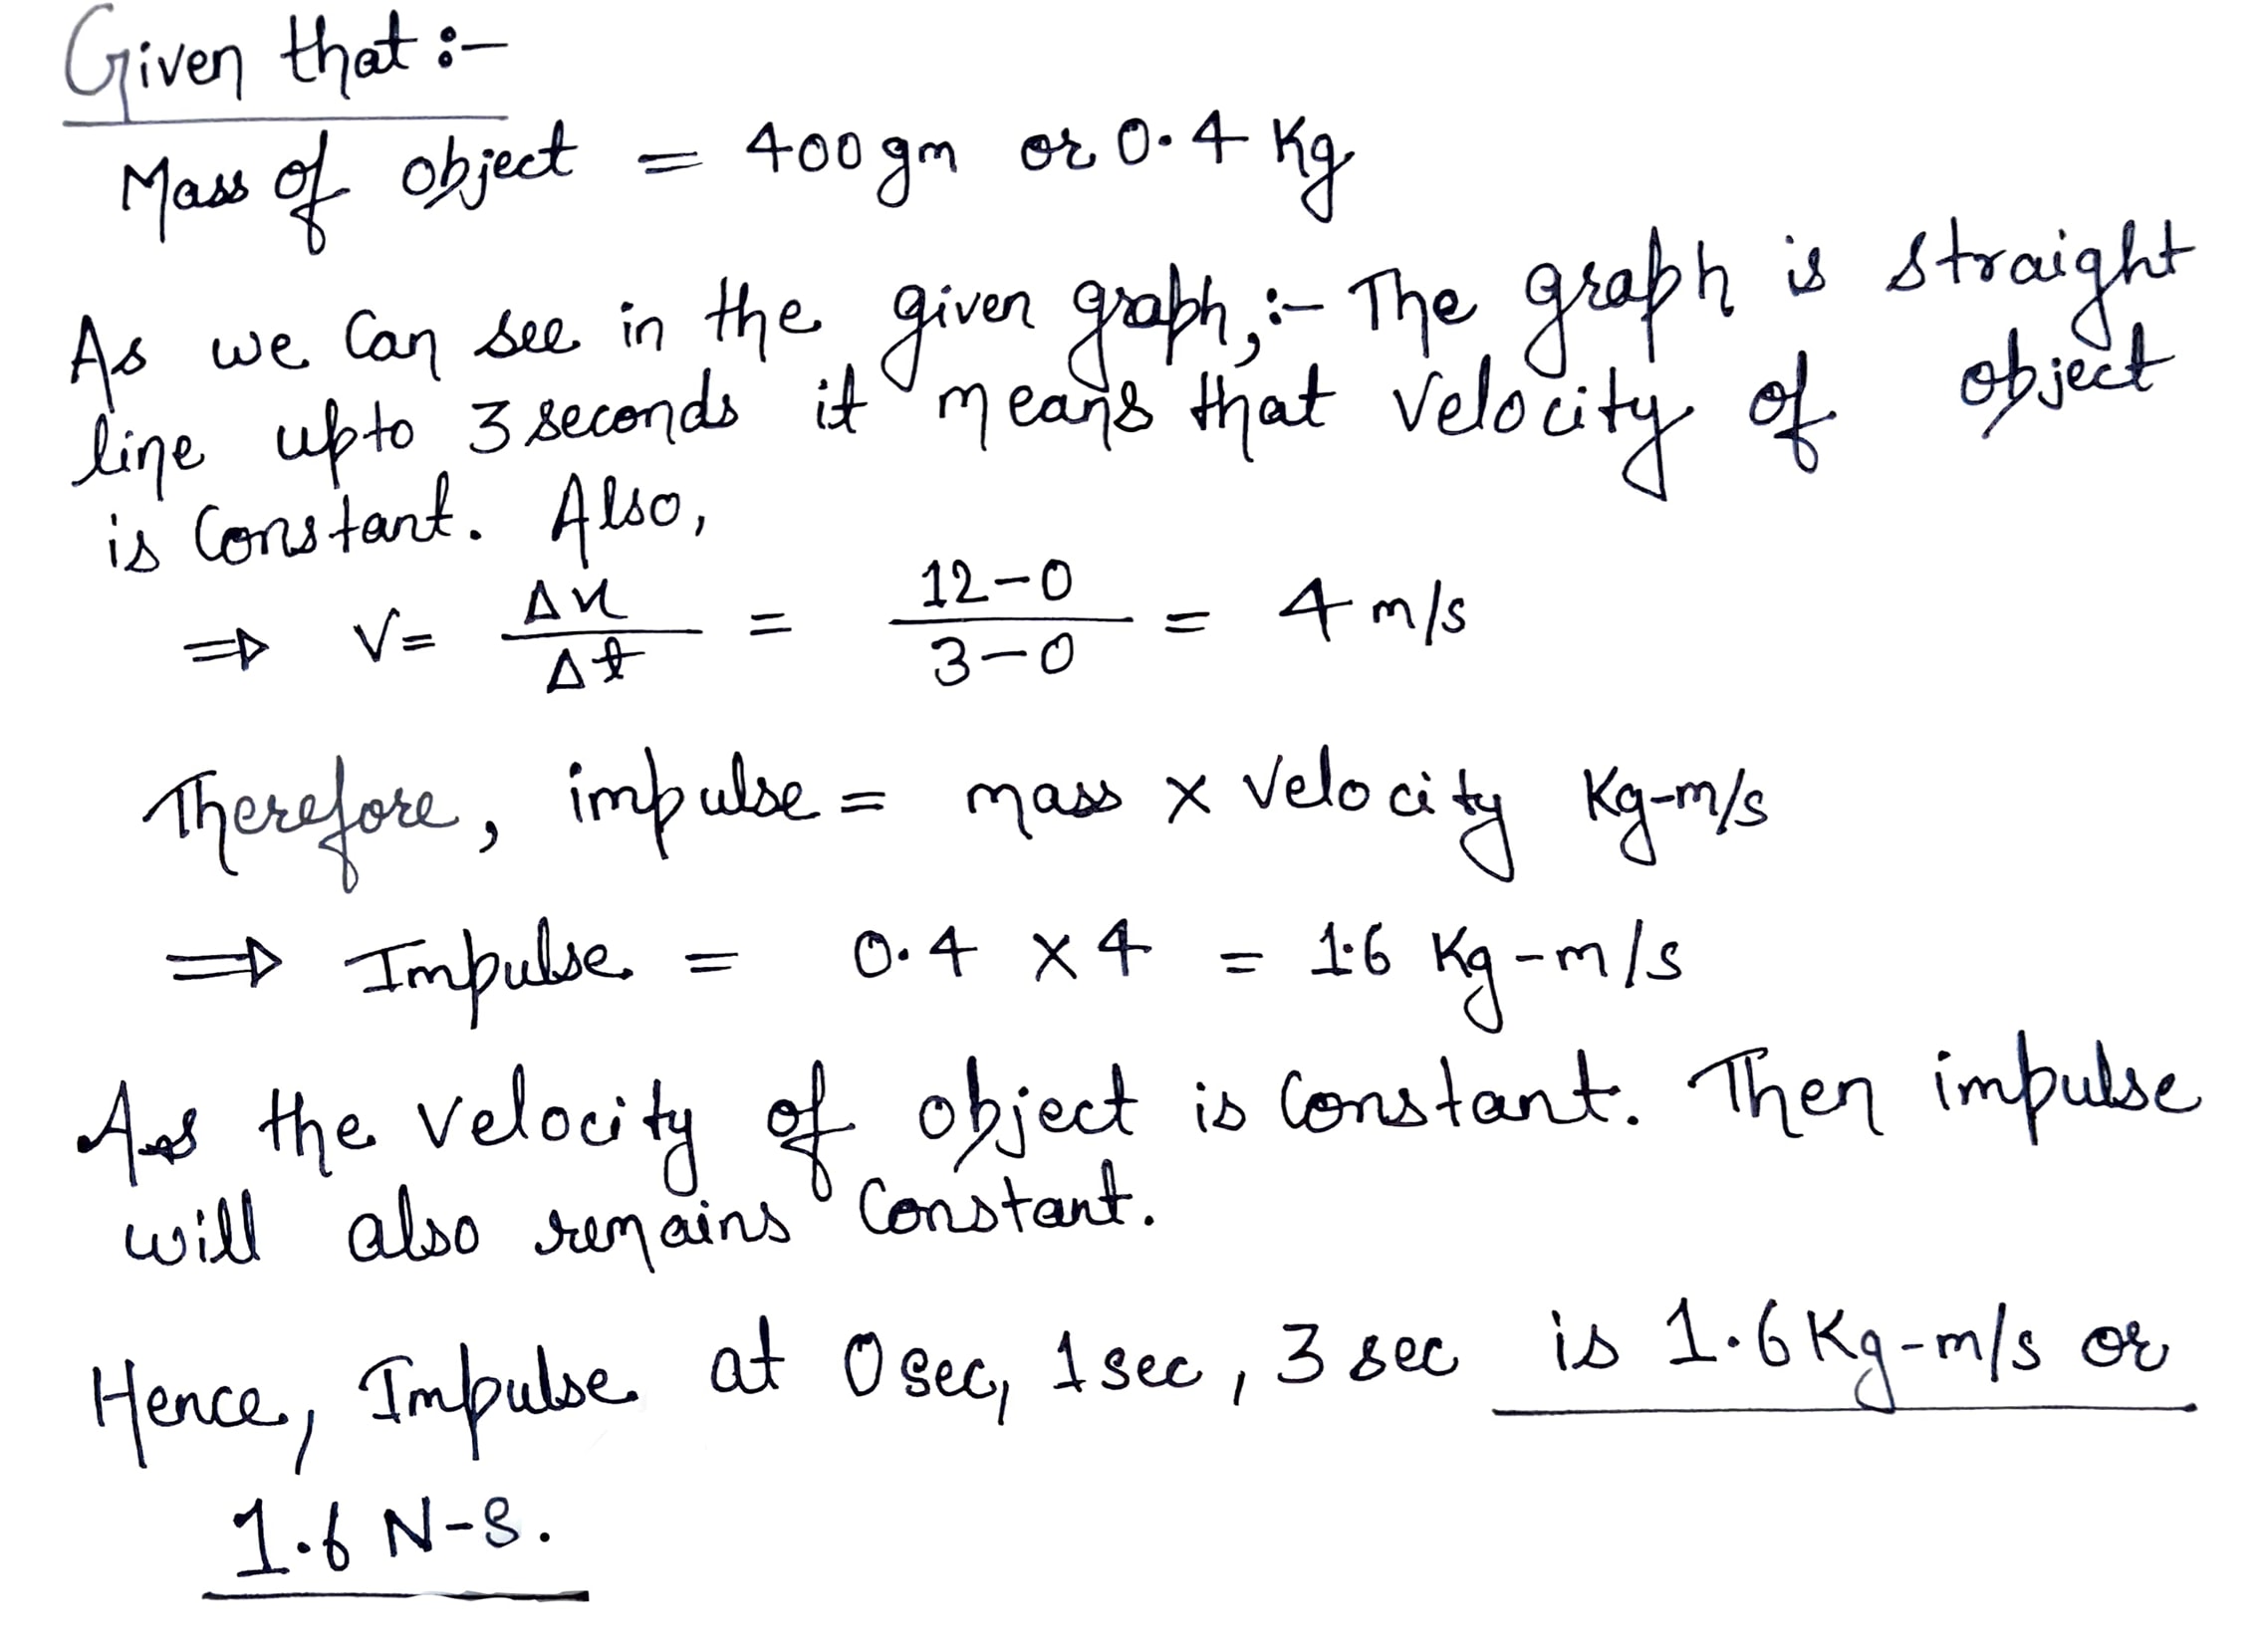 Given that :-
Mass of object = 400 gm or 0.4 Kg
As we Can see in the given graph, :- The graph is straight
line upto 3 seconds it means that Velocity of object
is Constant. Also,
⇒ V = Δx/Δt = 12-0/3-0 = 4 m/s
Therefore, impulse = mass × Velocity Kg-m/s
⇒ Impulse = 0.4 × 4 = 1.6 Kg-m/s
As the velocity of object is Constant. Then impulse
will also remains Constant.
Hence, Impulse at 0 sec, 1 sec, 3 sec is 1.6 Kg-m/s or
1.6 N-S.